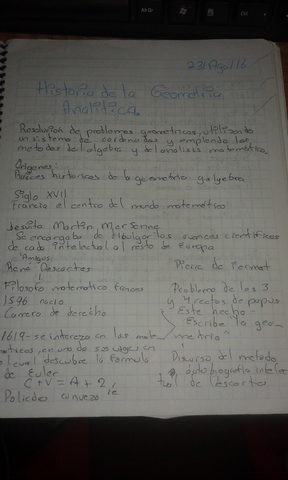 23/Ago/16
Historia de la Geometria
Analitica.
Resolucion de problemas geometricos, utilizando
un sistema de cordenadas y empleando los
metodos del algebra y del analisis matematico.
Origenes:
Raices historicas de la geometria y algebra
Siglo XVII
Francia el centro del mundo matematico
Jesuita Martin Mersenne
Se encargaba de dibulgar los avances cientificos
de cada intelectual al resto de Europa
Amigos:
Rene Descartes
Filosofo matematico frances
1596 nacio
Carrera de derecho
1619- se intereza en las mate
maticas, en uno de sus viajes en
descubre la formula
de Euler
C + V = A + 2
Poliedro convexo
Pierre de Fermat
Problema de las 3
y 4 rectas de papus
Este hecho
Escribe la geo
metria"
Discurso del metodo
autobiografia intelec
tual de Descartes